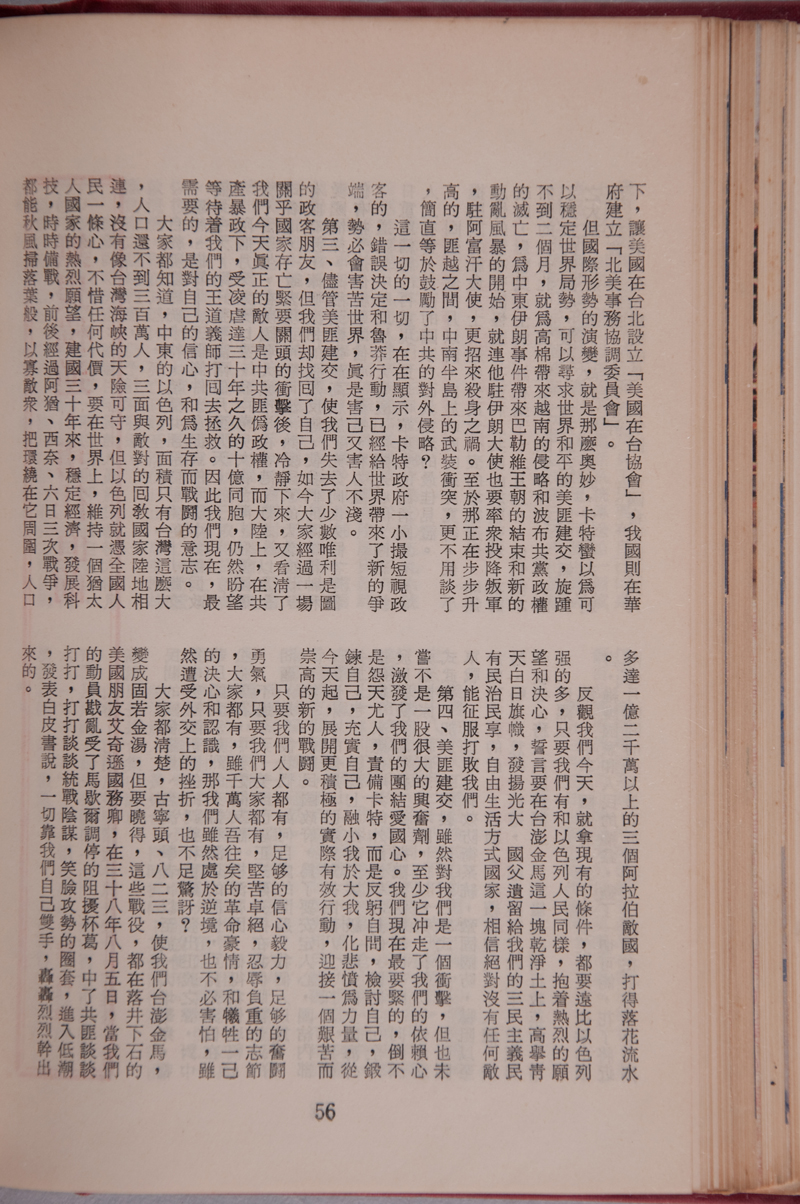 下，讓美國在台北設立「美國在台協會」，我國則在華
府建立「北美事務協調委員會」。
但國際形勢的演變，就是那麼奧妙，卡特蠻以爲可
以穩定世界局勢，可以尋求世界和平的美匪建交，旋踵
不到二個月，就爲高棉帶來越南的侵略和波布共黨政權
的滅亡，爲中東伊朗事件帶來巴勒維王朝的結束和新的
動亂風暴的開始，就連他駐伊朗大使也要率衆投降叛軍
，駐阿富汗大使，更招來殺身之禍。至於那正在步步升
高的，匪越之間，中南半島上的武裝衝突，更不用談了
，簡直等於鼓勵了中共的對外侵略？
這一切的一切，在在顯示，卡特政府一小撮短視政
客的，錯誤決定和魯莽行動，已經給世界帶來了新的爭
端，勢必會害苦世界，眞是害己又害人不淺。
第三、儘管美匪建交，使我們失去了少數唯利是圖
的政客朋友，但我們却找囘了自己，如今大家經過一場
關乎國家存亡緊要關頭的衝擊後，冷靜下來，又看淸了
我們今天眞正的敵人是中共匪僞政權，而大陸上，在共
產暴政下，受凌虐達三十年之久的十億同胞，仍然盼望
等待着我們的王道義師打囘去拯救。因此我們現在，最
需要的，是對自己的信心，和爲生存而戰鬪的意志。
大家都知道，中東的以色列，面積只有台灣這麼大
，人口還不到三百萬人，三面與敵對的囘敎國家陸地相
連，沒有像台灣海峽的天險可守，但以色列就憑全國人
民一條心，不惜任何代價，要在世界上，維持一個猶太
人國家的熱烈願望，建國三十年來，穩定經濟，發展科
技，時時備戰，前後經過阿猶、西奈、六日三次戰爭，
都能秋風掃落葉般，以寡敵衆，把環繞在它周圍，人口
多達一億二千萬以上的三個阿拉伯敵國，打得落花流水
。
反觀我們今天，就拿現有的條件，都要遠比以色列
强的多，只要我們有和以色列人民同樣，抱着熱烈的願
望和決心，誓言要在台澎金馬這一塊乾淨土上，高舉靑
天白日旗幟，發揚光大　國父遺留給我們的三民主義民
有民治民享，自由生活方式國家，相信絕對沒有任何敵
人，能征服打敗我們。
第四、美匪建交，雖然對我們是一個衝擊，但也未
嘗不是一股很大的興奮劑，至少它冲走了我們的依賴心
，激發了我們的團結愛國心。我們現在最要緊的，倒不
是怨天尤人，責備卡特，而是反躬自問，檢討自己，鍛
鍊自己，充實自己，融小我於大我，化悲憤爲力量，從
今天起，展開更積極的實際有效行動，迎接一個艱苦而
崇高的新的戰鬪。
只要我們人人都有，足够的信心毅力，足够的奮鬪
勇氣，只要我們大家都有，堅苦卓絕，忍辱負重的志節
，大家都有，雖千萬人吾往矣的革命豪情，和犧牲一己
的決心和認識，那我們雖然處於逆境，也不必害怕，雖
然遭受外交上的挫折，也不足驚訝？
大家都淸楚，古寧頭、八二三，使我們台澎金馬，
變成固若金湯，但要曉得，這些戰役，都在落井下石的
美國朋友艾奇遜國務卿，在三十八年八月五日，當我們
的動員戡亂受了馬歇爾調停的阻擾杯葛，中了共匪談談
打打，打打談談統戰陰謀，笑臉攻勢的圈套，進入低潮
，發表白皮書說，一切靠我們自己雙手，轟轟烈烈幹出
來的。
56